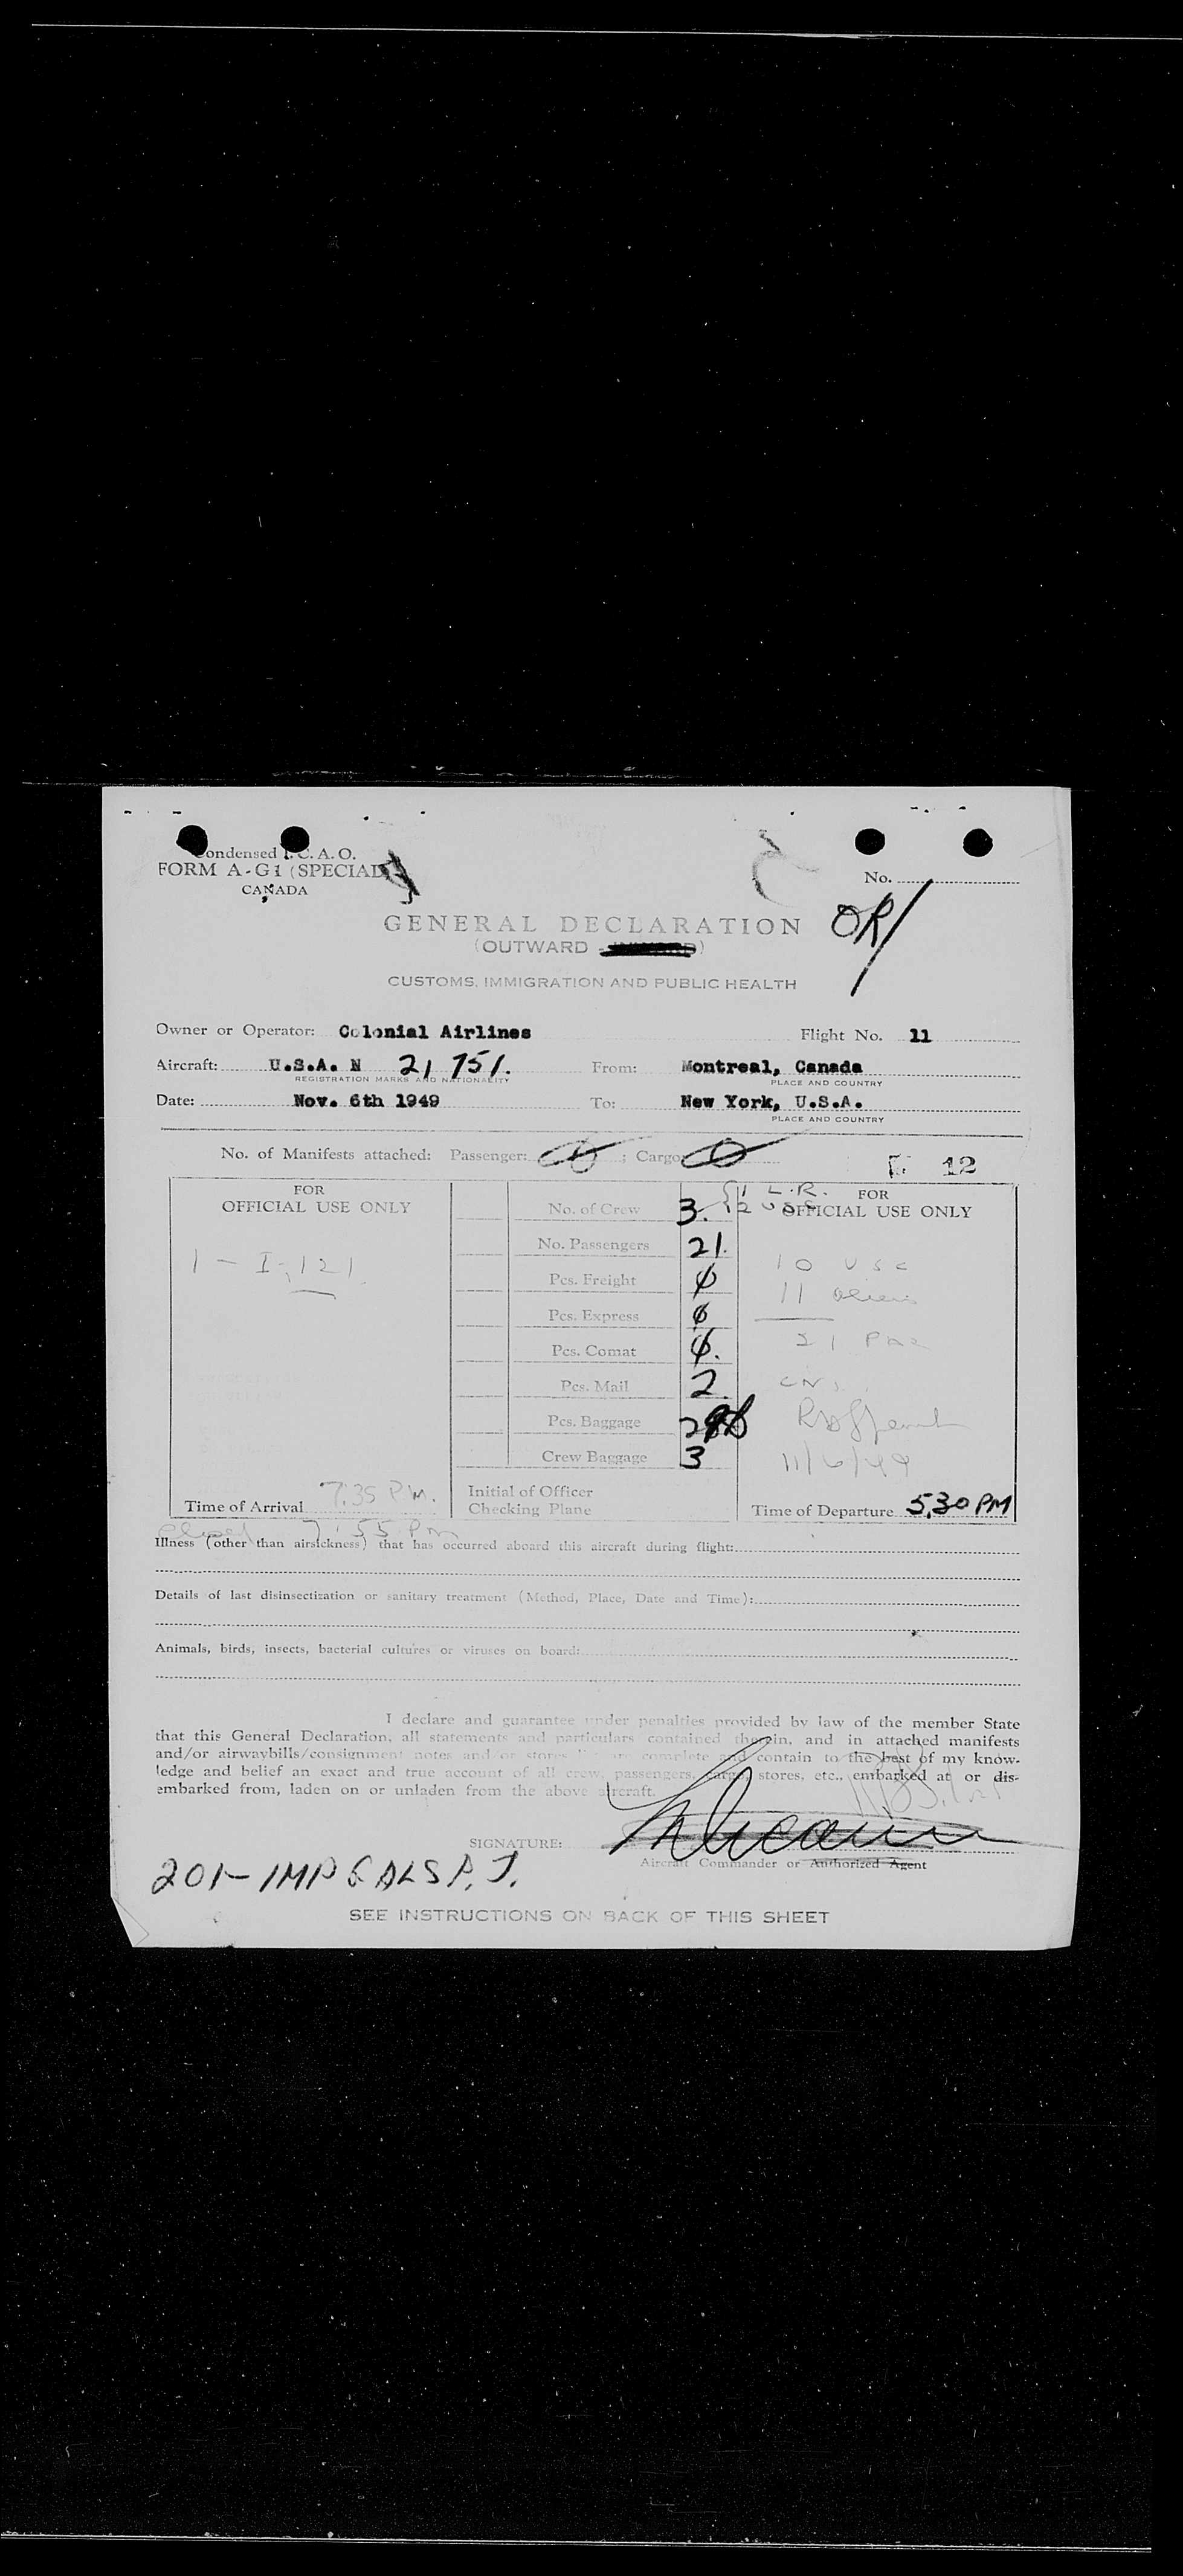 Condensed I.C.A.O.
FORM A-G1 (SPECIAL)
CANADA
No.
OR/
GENERAL DECLARATION
(OUTWARD - )
CUSTOMS, IMMIGRATION AND PUBLIC HEALTH
Owner or Operator: Colonial Airlines Flight No. 11
Aircraft: U.S.A. N 21 751. From: Montreal, Canada
REGISTRATION MARKS AND NATIONALITY PLACE AND COUNTRY
Date: Nov. 6th 1949 To: New York, U.S.A.
PLACE AND COUNTRY
No. of Manifests attached: Passenger: ; Cargo:
12
FOR
OFFICIAL USE ONLY
1 - I-121
Time of Arrival 7:35 P.M.
closed 7:55 PM
No. of Crew 3. 1 L.R.
2 USC
No. Passengers 21.
Pcs. Freight 0
Pcs. Express 0
Pcs. Comat 0.
Pcs. Mail 2
Pcs. Baggage
Crew Baggage 3
Initial of Officer
Checking Plane
FOR
OFFICIAL USE ONLY
10 USC
11 aliens
21 Pax
11/6/49
Time of Departure 5:30 PM
Illness (other than airsickness) that has occurred aboard this aircraft during flight:
Details of last disinsectization or sanitary treatment (Method, Place, Date and Time):
Animals, birds, insects, bacterial cultures or viruses on board:
I declare and guarantee under penalties provided by law of the member State
that this General Declaration, all statements and particulars contained therein, and in attached manifests
and/or airwaybills/consignment notes and/or stores list are complete and contain to the best of my know-
ledge and belief an exact and true account of all crew, passengers, cargo, stores, etc., embarked at or dis-
embarked from, laden on or unladen from the above aircraft.
SIGNATURE:
Aircraft Commander or Authorized Agent
201-IMP & ALS P. J.
SEE INSTRUCTIONS ON BACK OF THIS SHEET